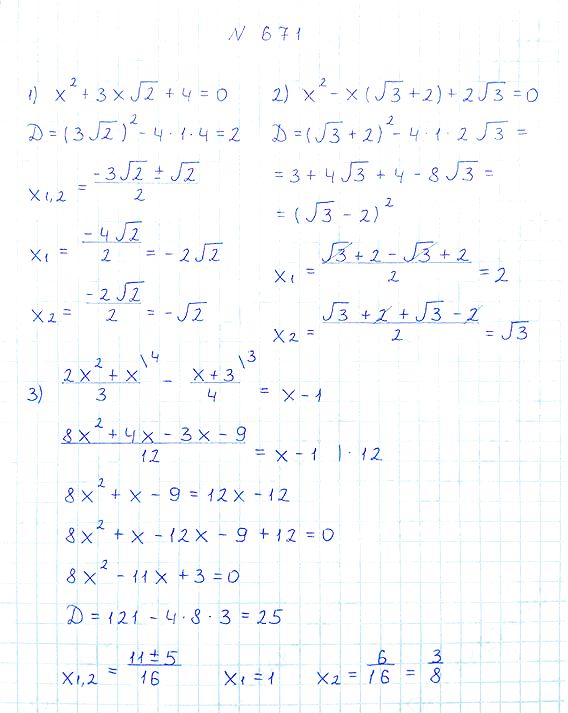 N 671
1) x² + 3x√2 + 4 = 0
D = (3√2)² - 4·1·4 = 2
x₁,₂ = (-3√2 ± √2)/2
x₁ = (-4√2)/2 = -2√2
x₂ = (-2√2)/2 = -√2
2) x² - x(√3 + 2) + 2√3 = 0
D = (√3 + 2)² - 4·1·2√3 =
= 3 + 4√3 + 4 - 8√3 =
= (√3 - 2)²
x₁ = (√3 + 2 - √3 + 2)/2 = 2
x₂ = (√3 + 2 + √3 - 2)/2 = √3
3) (2x² + x)/3 \4 - (x + 3)/4 \3 = x - 1
(8x² + 4x - 3x - 9)/12 = x - 1 | · 12
8x² + x - 9 = 12x - 12
8x² + x - 12x - 9 + 12 = 0
8x² - 11x + 3 = 0
D = 121 - 4·8·3 = 25
x₁,₂ = (11 ± 5)/16 x₁ = 1 x₂ = 6/16 = 3/8